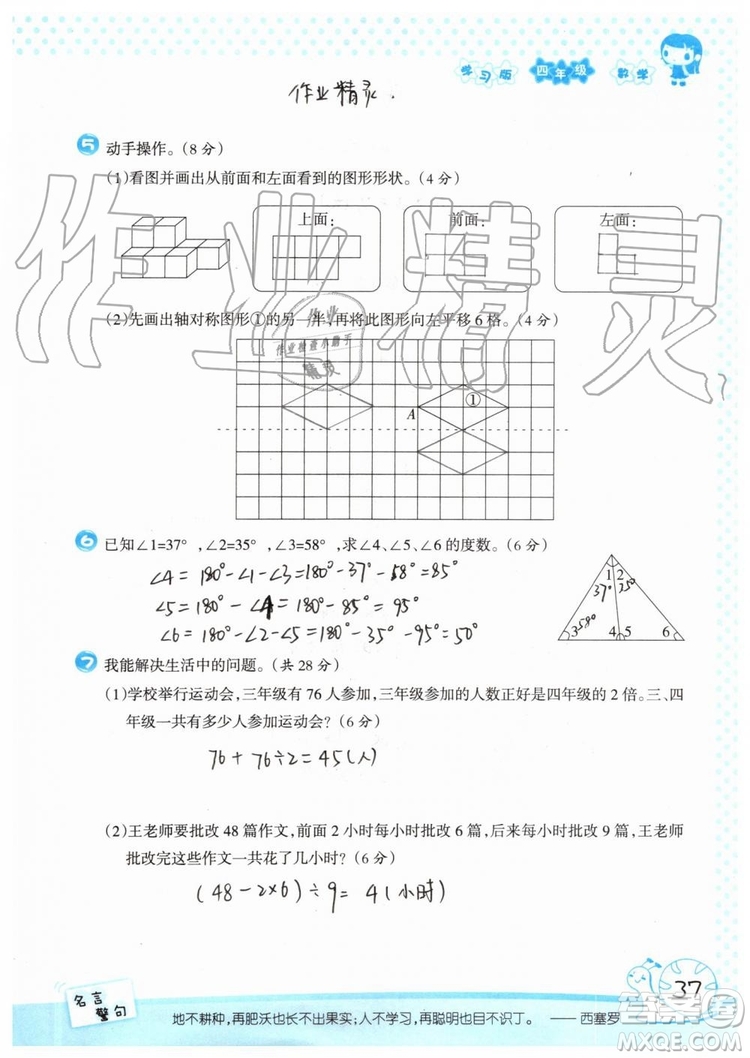 学习版 四年级 数学
作业精灵.
5 动手操作。(8 分)
(1)看图并画出从前面和左面看到的图形形状。(4 分)
上面: 前面: 左面:
(2)先画出轴对称图形①的另一半,再将此图形向左平移 6 格。(4 分)
作业
作业检查小助手
精灵
A ①
6 已知∠1=37°,∠2=35°,∠3=58°,求∠4、∠5、∠6 的度数。(6 分)
∠4=180°-∠1-∠3=180°-37°-58°=85°
∠5=180°-∠4=180°-85°=95°
∠6=180°-∠2-∠5=180°-35°-95°=50°
1 2
37° 35°
3 58° 4 5 6
7 我能解决生活中的问题。(共 28 分)
(1)学校举行运动会,三年级有 76 人参加,三年级参加的人数正好是四年级的 2 倍。三、四
年级一共有多少人参加运动会?(6 分)
76+76÷2=45(人)
(2)王老师要批改 48 篇作文,前面 2 小时每小时批改 6 篇,后来每小时批改 9 篇,王老师
批改完这些作文一共花了几小时?(6 分)
(48-2×6)÷9=4(小时)
名言
警句
地不耕种,再肥沃也长不出果实;人不学习,再聪明也目不识丁。 ——西塞罗
37
作业精灵
作业帮
MXQE.COM